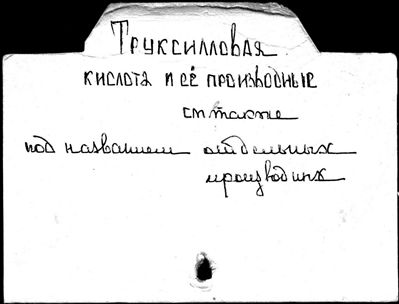 Труксилловая
кислота и её производные
см также
под названием отдельных
производных